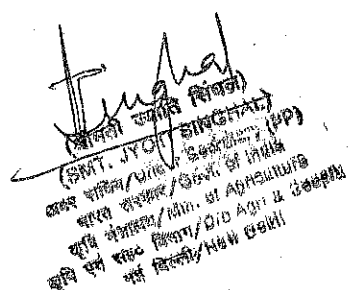 Singhal
(श्रीमती ज्योति सिंघल)
(SMT. JYOTI SINGHAL)
अवर सचिव/Under Secretary (PP)
भारत सरकार/Govt. of India
कृषि मंत्रालय/Min. of Agriculture
कृषि एवं सह० विभाग/D/o Agri & Coopn
नई दिल्ली/New Delhi